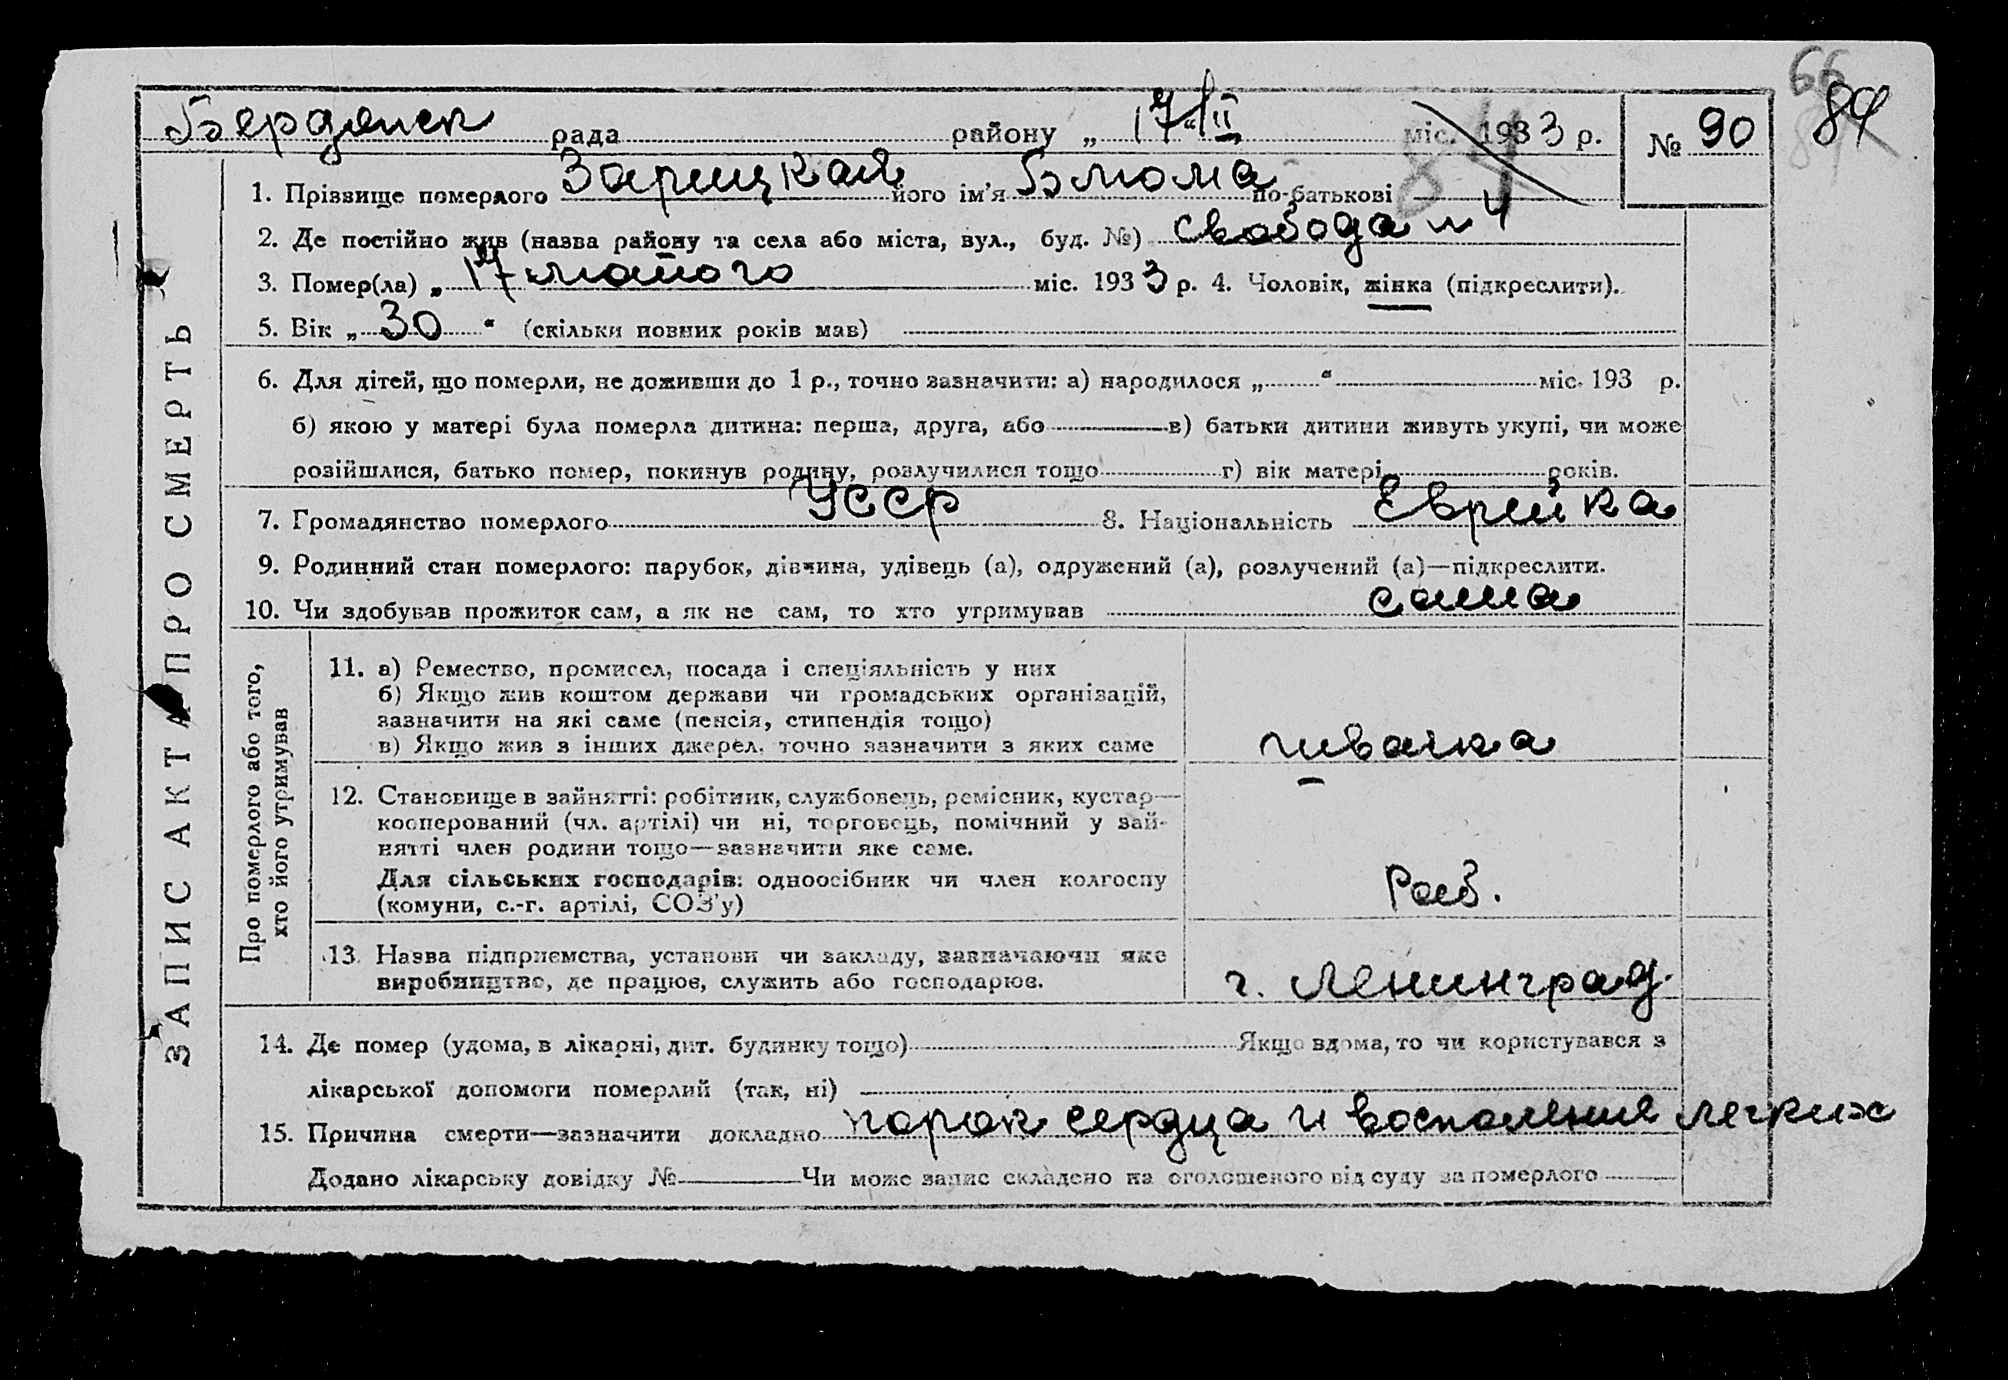 66
84
Бердянск рада района „ 17/II міс. 1933 р. № 90
84
1. Прізвище померлого Зарицкая його ім'я Блюма по-батькові
2. Де постійно жив (назва району та села або міста, вул., буд. №) Свобода № 4
3. Помер(ла) „ 17 лютого міс. 1933 р. 4. Чоловік, жінка (підкреслити).
5. Вік „ 30 “ (скільки повних років мав)
6. Для дітей, що померли, не доживши до 1 р., точно зазначити: а) народилося „ “ міс. 193 р.
б) якою у матері була померла дитина: перша, друга, або в) батьки дитини живуть укупі, чи може
розійшлися, батько помер, покинув родину, розлучилися тощо г) вік матері років.
7. Громадянство померлого УССР 8. Національність Еврейка
9. Родинний стан померлого: парубок, дівчина, удівець (а), одружений (а), розлучений (а)—підкреслити.
10. Чи здобував прожиток сам, а як не сам, то хто утримував сама
ЗАПИС АКТА ПРО СМЕРТЬ
Про померлого або того,
хто його утримував
11. а) Ремество, промисел, посада і спеціяльність у них
б) Якщо жив коштом держави чи громадських організацій,
зазначити на які саме (пенсія, стипендія тощо)
в) Якщо жив з інших джерел, точно зазначити з яких саме
швачка
12. Становище в зайнятті: робітник, службовець, ремісник, кустар—
кооперований (чл. артілі) чи ні, торговець, помічний у зай-
нятті член родини тощо—зазначити яке саме.
Для сільських господарів: одноосібник чи член колгоспу
(комуни, с.-г. артілі, СОЗ'у)
Раб.
13. Назва підприємства, установи чи закладу, зазначаючи яке
виробництво, де працює, служить або господарює.
г. Ленинград.
14. Де помер (удома, в лікарні, дит. будинку тощо) Якщо вдома, то чи користувався з
лікарської допомоги померлий (так, ні)
15. Причина смерти—зазначити докладно порок сердца и воспаление легких
Додано лікарську довідку № Чи може запис складено на оголошеного від суду за померлого